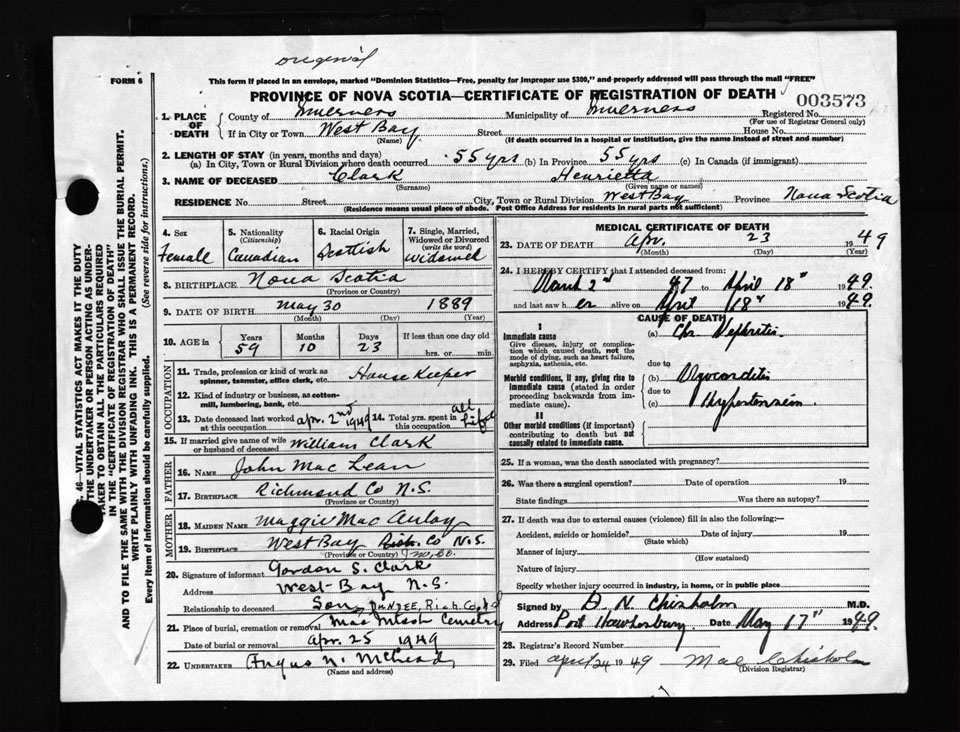 original
FORM 6
This form if placed in an envelope, marked "Dominion Statistics—Free, penalty for improper use $300," and properly addressed will pass through the mail "FREE"
PROVINCE OF NOVA SCOTIA—CERTIFICATE OF REGISTRATION OF DEATH
003573
1. PLACE OF DEATH County of Inverness Municipality of Inverness Registered No.
(For use of Registrar General only)
If in City or Town West Bay Street House No.
(Name) (If death occurred in a hospital or institution, give the name instead of street and number)
2. LENGTH OF STAY (in years, months and days)
(a) In City, Town or Rural Division where death occurred 55 yrs (b) In Province 55 yrs (c) In Canada (if immigrant)
3. NAME OF DECEASED Clark Henrietta
(Surname) (Given name or names)
RESIDENCE No. Street City, Town or Rural Division West Bay Province Nova Scotia
(Residence means usual place of abode. Post Office Address for residents in rural parts not sufficient)
4. Sex Female
5. Nationality (Citizenship) Canadian
6. Racial Origin Scottish
7. Single, Married, Widowed or Divorced (write the word) Widowed
8. BIRTHPLACE Nova Scotia
(Province or Country)
9. DATE OF BIRTH May 30 1889
(Month) (Day) (Year)
10. AGE IN Years 59 Months 10 Days 23 If less than one day old hrs. or min.
OCCUPATION
11. Trade, profession or kind of work as spinner, teamster, office clerk, etc. House Keeper
12. Kind of industry or business, as cotton-mill, lumbering, bank, etc.
13. Date deceased last worked at this occupation Apr. 2nd 1949
14. Total yrs. spent in this occupation all Life
15. If married give name of wife or husband of deceased William Clark
FATHER
16. NAME John Mac Lean
17. BIRTHPLACE Richmond Co N.S.
(Province or Country)
MOTHER
18. MAIDEN NAME Maggie Mac Aulay
19. BIRTHPLACE West Bay Rich. Co N.S.
(Province or Country)
20. Signature of informant Gordon S. Clark
Address West Bay N.S.
Relationship to deceased Son
DUNDEE, Rich Co
21. Place of burial, cremation or removal Mac Intosh Cemetery
Date of burial or removal Apr. 25 1949
22. UNDERTAKER Angus N. McLeod
(Name and address)
MEDICAL CERTIFICATE OF DEATH
23. DATE OF DEATH Apr. 23 1949
(Month) (Day) (Year)
24. I HEREBY CERTIFY that I attended deceased from:
March 2nd 47 to April 18th 1949.
and last saw her alive on April 18th 1949.
CAUSE OF DEATH
I
Immediate cause
Give disease, injury or complication which caused death, not the mode of dying, such as heart failure, asphyxia, asthenia, etc.
(a) Chr Nephritis
due to
Morbid conditions, if any, giving rise to immediate cause (stated in order proceeding backwards from immediate cause).
(b) Myocarditis
due to
(c) Hypertension
II
Other morbid conditions (if important) contributing to death but not causally related to immediate cause.
25. If a woman, was the death associated with pregnancy?
26. Was there a surgical operation? Date of operation 19
State findings Was there an autopsy?
27. If death was due to external causes (violence) fill in also the following:—
Accident, suicide or homicide? Date of injury 19
(State which)
Manner of injury
(How sustained)
Nature of injury
Specify whether injury occurred in industry, in home, or in public place
Signed by D. N. Chisholm M.D.
Address Port Hawkesbury. Date May 17th 1949.
28. Registrar's Record Number
29. Filed April 24 1949 Mac Chisholm
(Division Registrar)
46—VITAL STATISTICS ACT MAKES IT THE DUTY
THE UNDERTAKER OR PERSON ACTING AS UNDER-
TAKER TO OBTAIN ALL THE PARTICULARS REQUIRED
IN THE "CERTIFICATE OF REGISTRATION OF DEATH"
AND TO FILE THE SAME WITH THE DIVISION REGISTRAR WHO SHALL ISSUE THE BURIAL PERMIT.
WRITE PLAINLY WITH UNFADING INK. THIS IS A PERMANENT RECORD.
Every item of information should be carefully supplied. (See reverse side for instructions.)